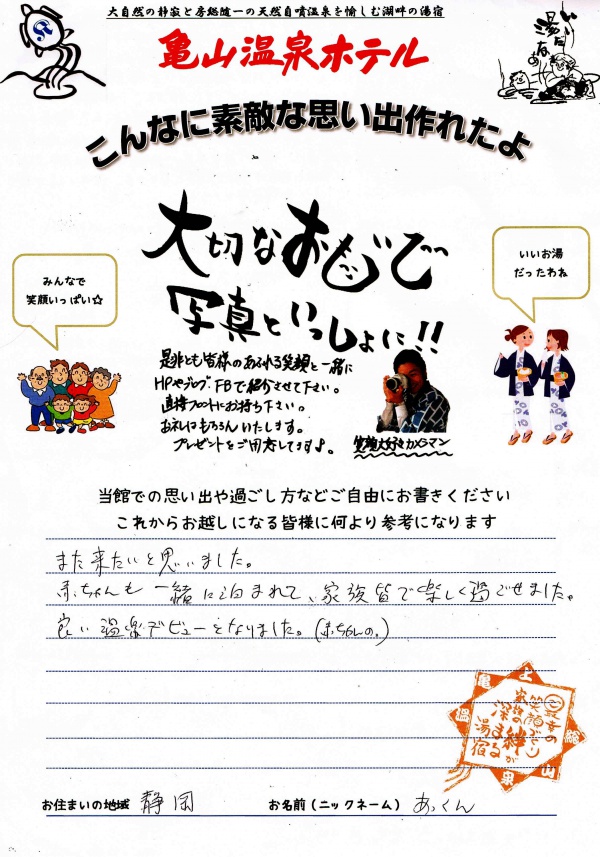 大自然の静寂と房総随一の天然自噴温泉を愉しむ湖畔の湯宿
亀山温泉ホテル
こんなに素敵な思い出作れたよ
大切なおもいで
写真といっしょに!!
みんなで
笑顔いっぱい☆
いいお湯
だったわね
是非とも皆様のあふれる笑顔と一緒に
HPやブログ、FBで紹介させて下さい。
直接フロントにお持ち下さい。
お礼はもちろんいたします。
プレゼントをご用意してます♪。
笑顔大好きカメラマン
当館での思い出や過ごし方などご自由にお書きください
これからお越しになる皆様に何より参考になります
また来たいと思いました。
赤ちゃんも一緒に泊まれて、家族皆で楽しく過ごせました。
良い温泉デビューとなりました。(赤ちゃんの。)
お住まいの地域 静岡
お名前(ニックネーム) あっくん